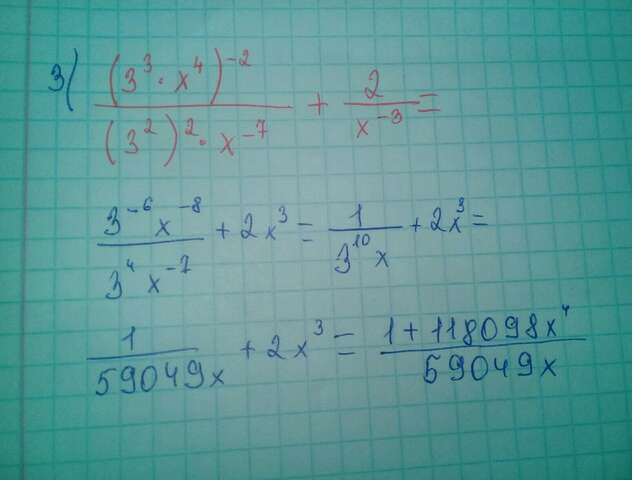 3) (3³ · x⁴)⁻² / (3²)² · x⁻⁷ + 2 / x⁻³ =
3⁻⁶x⁻⁸ / 3⁴x⁻⁷ + 2x³ = 1 / 3¹⁰x + 2x³ =
1 / 59049x + 2x³ = 1 + 118098x⁴ / 59049x